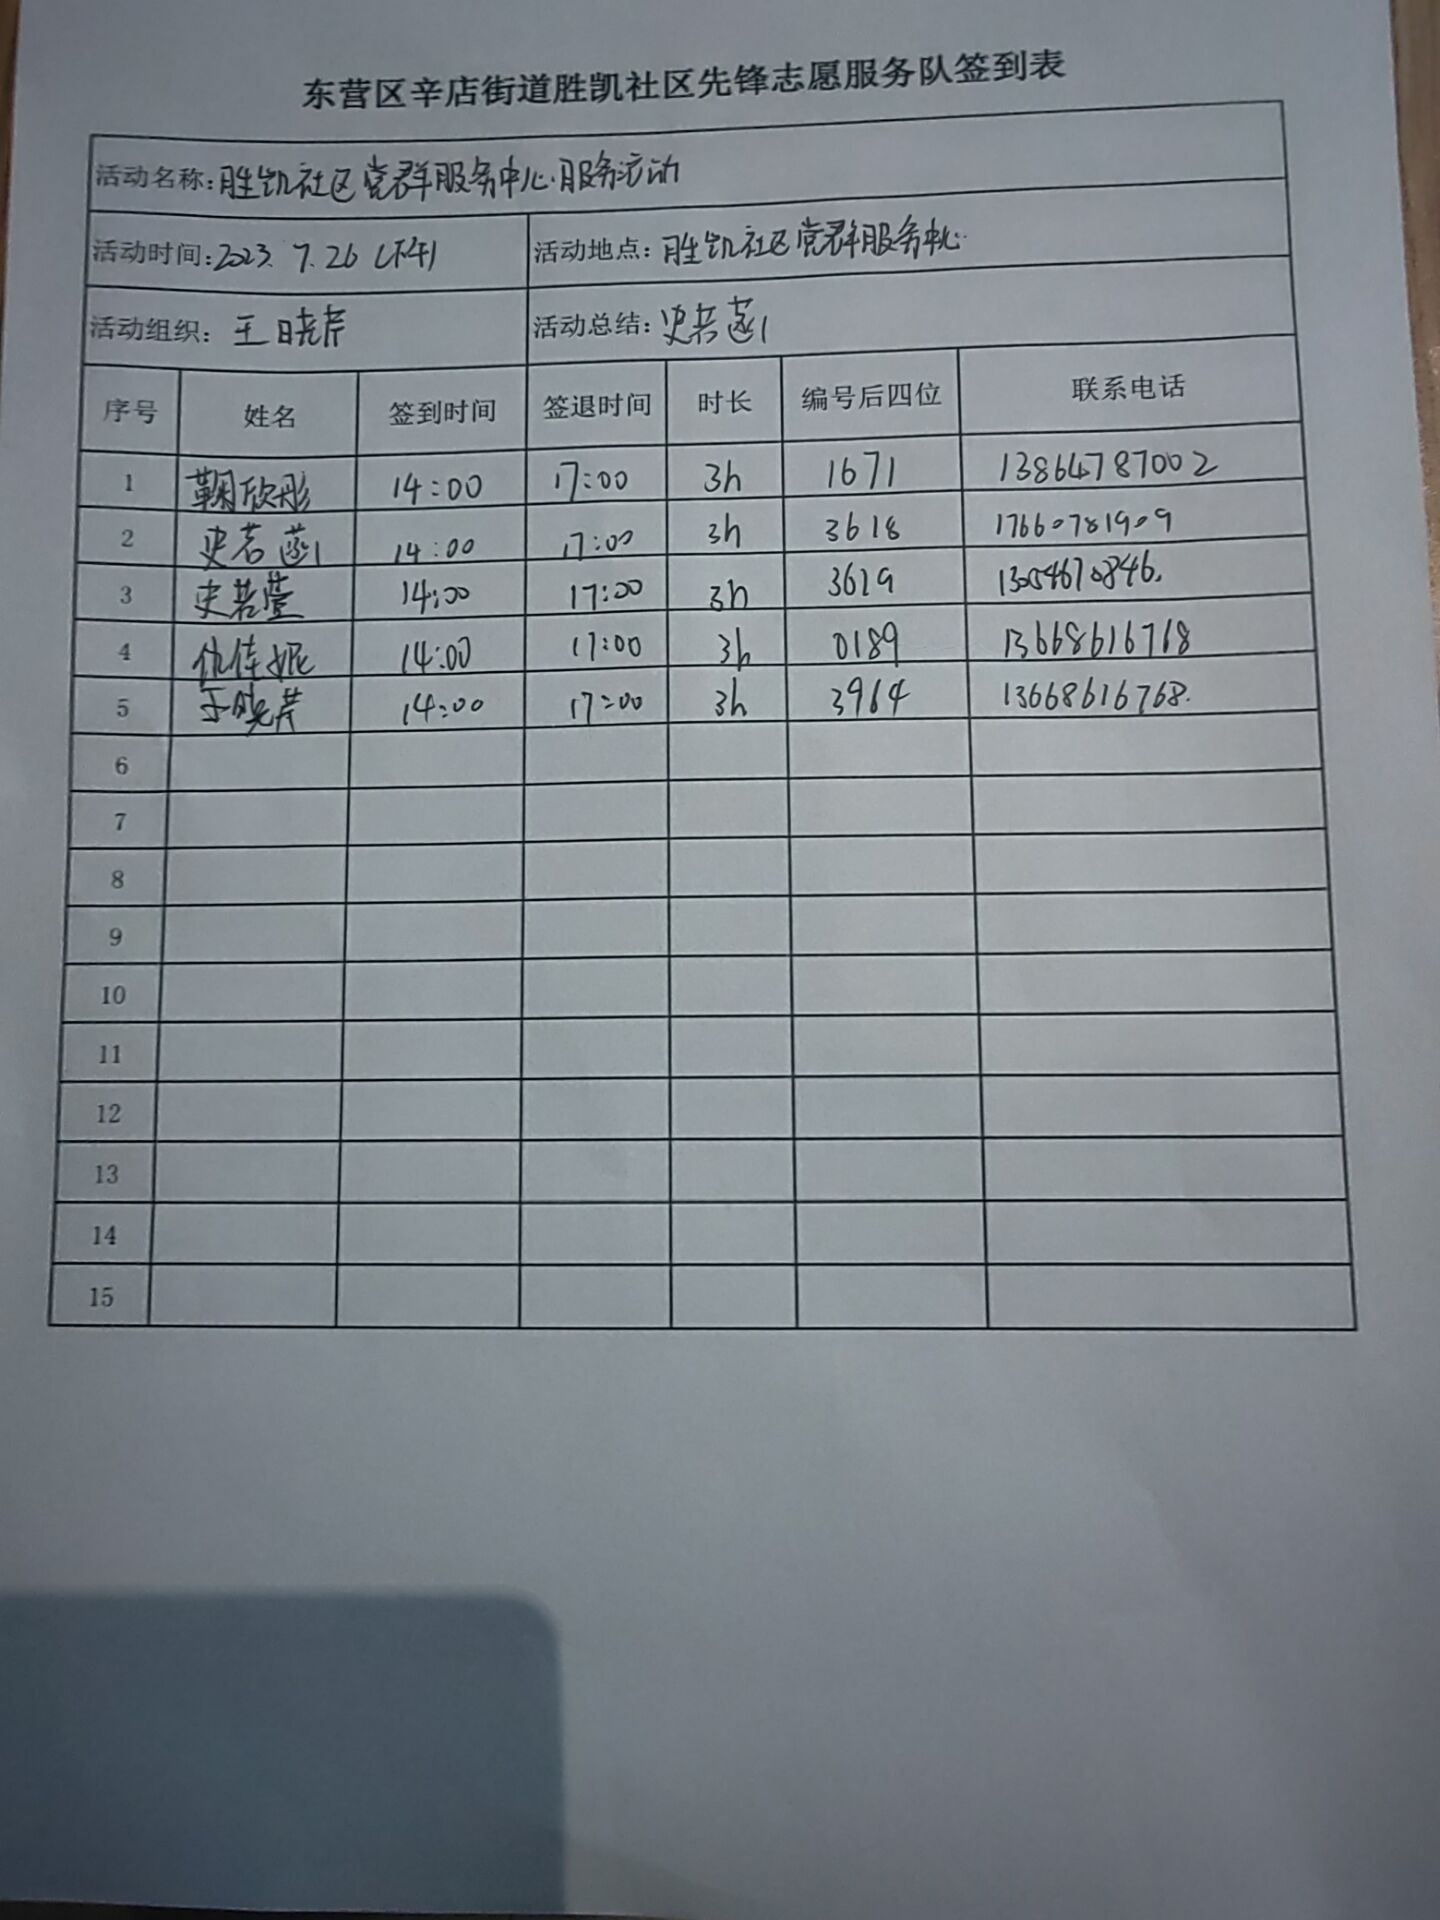 东营区辛店街道胜凯社区先锋志愿服务队签到表
活动名称：胜凯社区党群服务中心服务活动
活动时间：2023.7.26（下午） 活动地点：胜凯社区党群服务中心
活动组织：王晓芹 活动总结：史若菡
序号 姓名 签到时间 签退时间 时长 编号后四位 联系电话
1 鞠欣彤 14:00 17:00 3h 1671 13864787002
2 史若菡 14:00 17:00 3h 3618 17660781909
3 史若萱 14:00 17:00 3h 3619 13054670846.
4 仇佳妮 14:00 17:00 3h 0189 13668616768
5 王晓芹 14:00 17:00 3h 3964 13668616768.
6
7
8
9
10
11
12
13
14
15